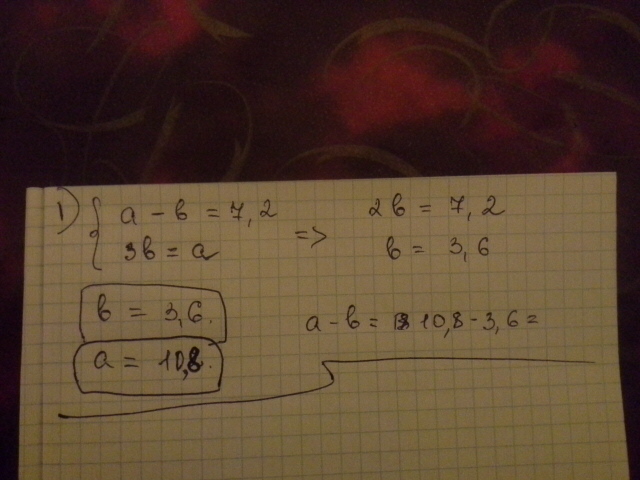 1) { a - b = 7,2
3b = a
=>
2b = 7,2
b = 3,6
b = 3,6.
a = 10,8.
a - b = 10,8 - 3,6 =